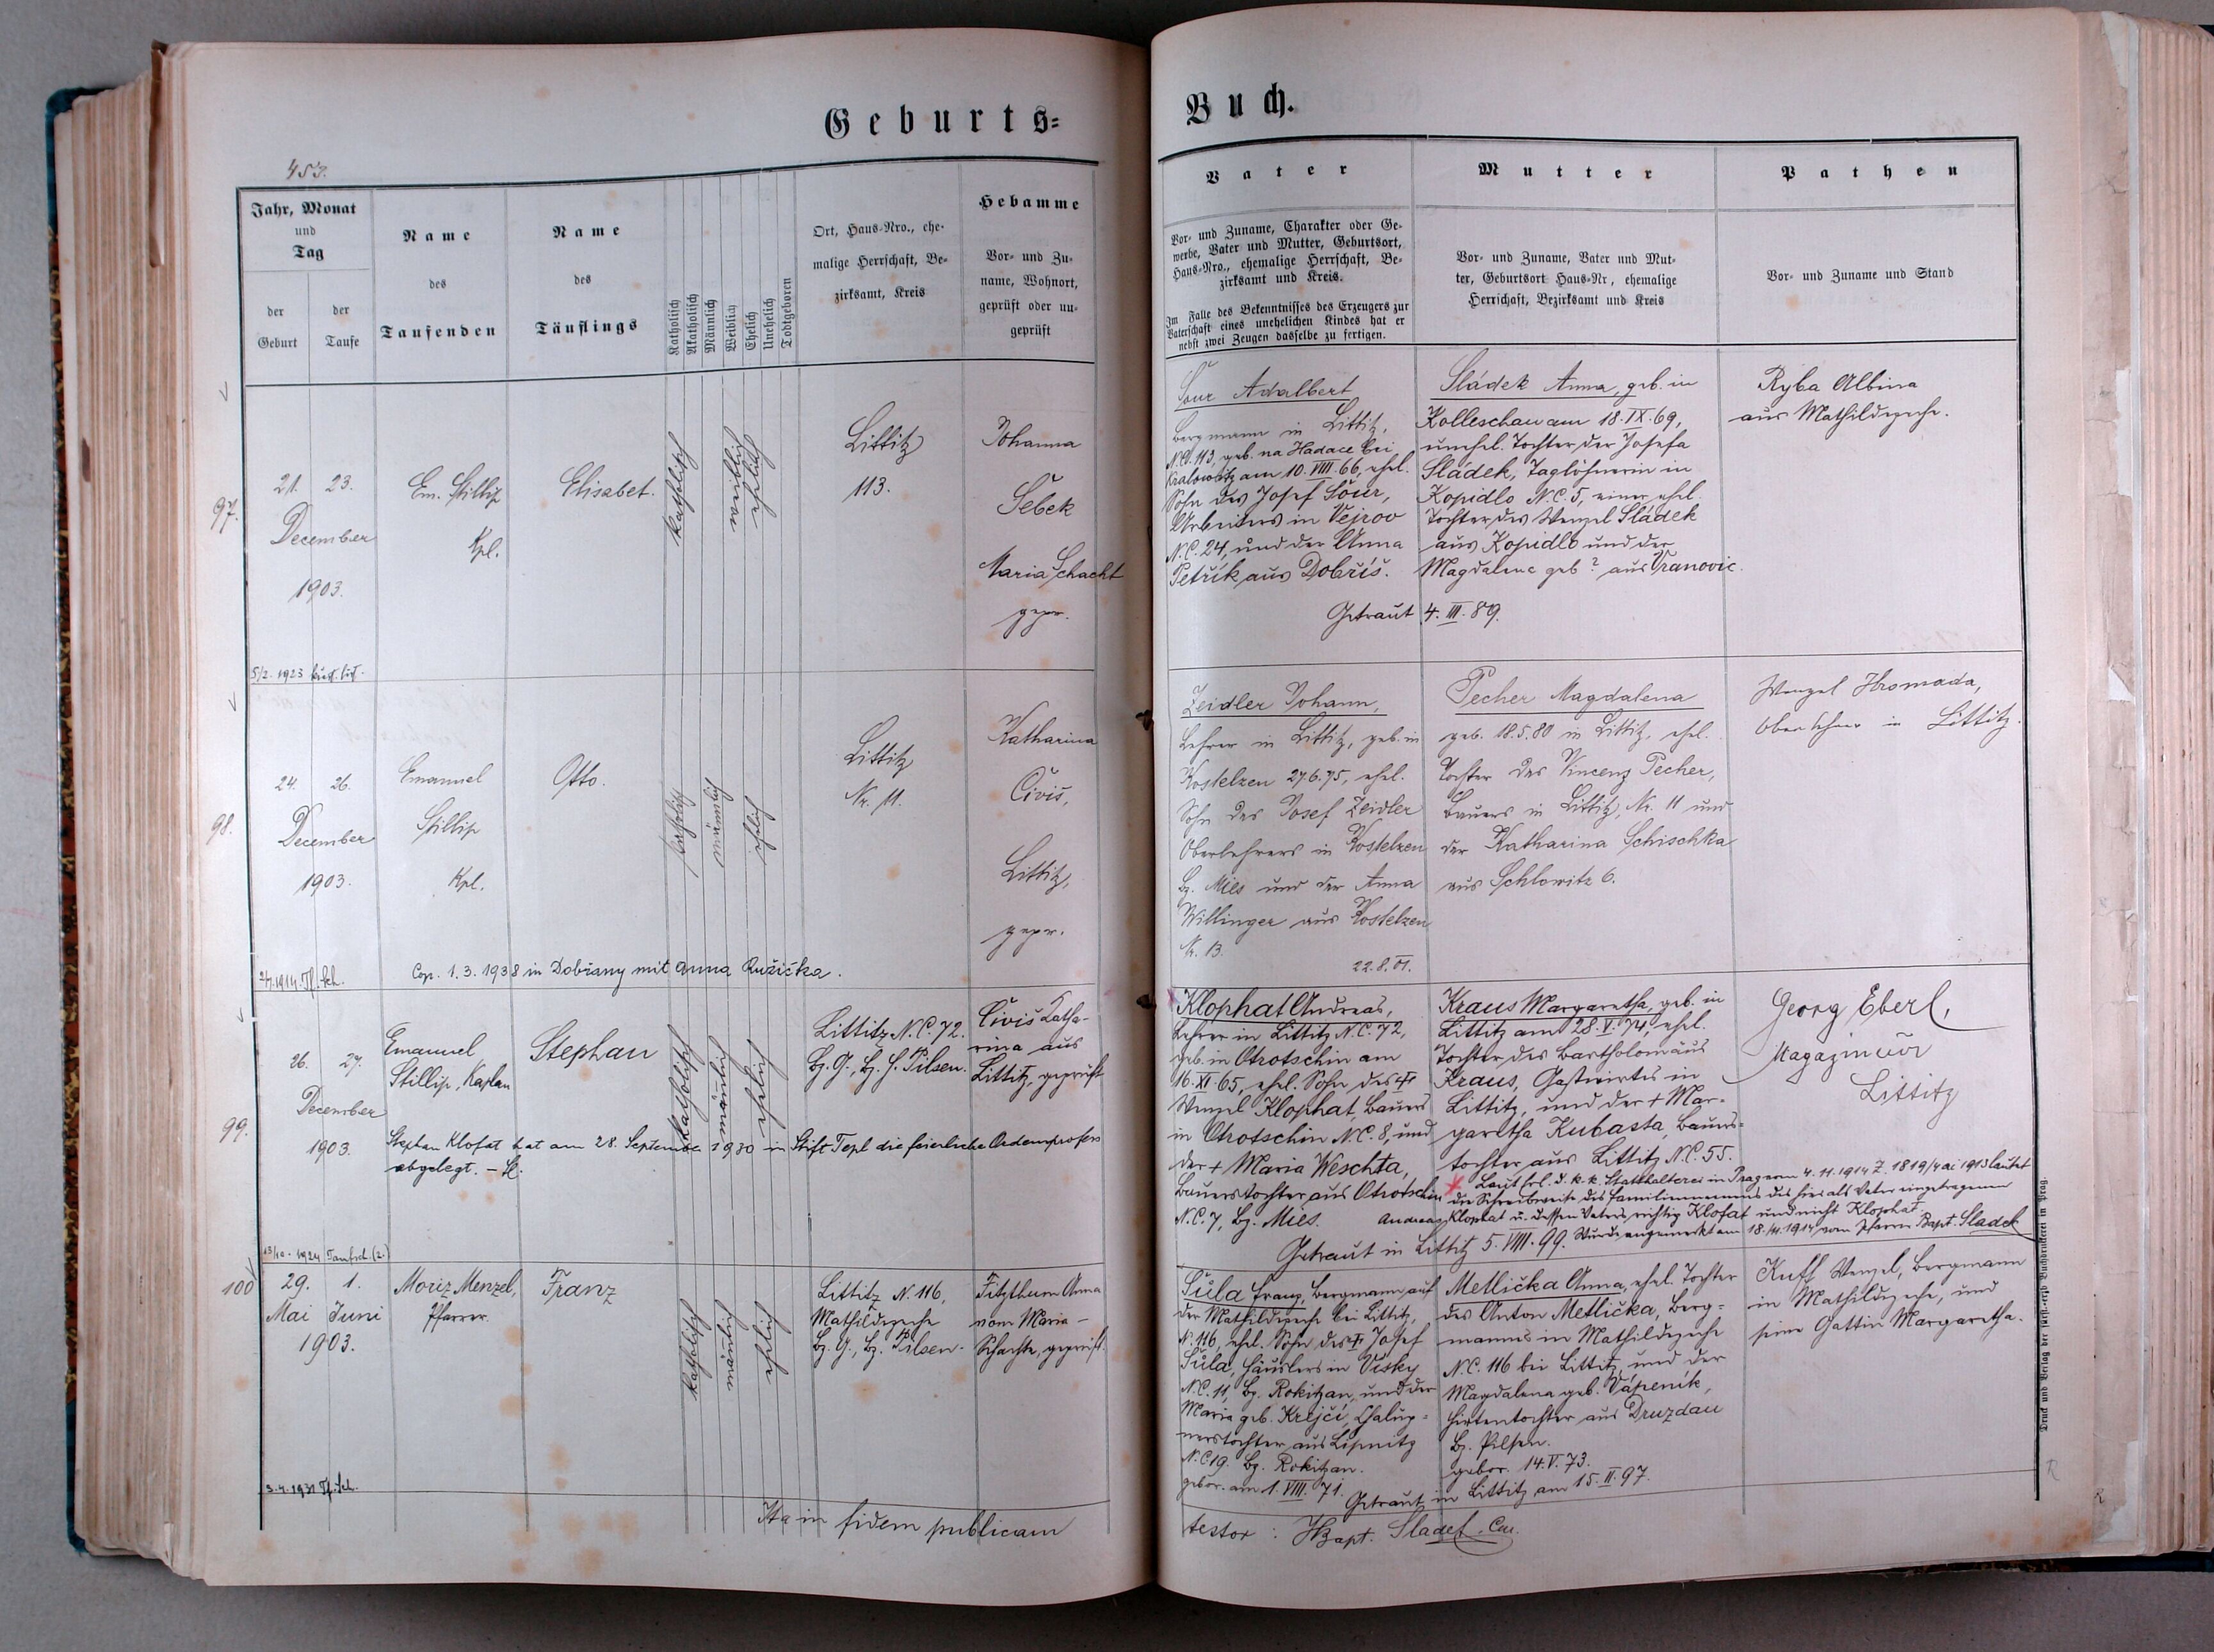 Geburts=
Buch.
453.
Jahr, Monat
und
Tag
der
Geburt
der
Taufe
Name
des
Taufenden
Name
des
Täuflings
Katholisch
Akatholisch
Männlich
Weiblich
Ehelich
Unehelich
Todtgeboren
Ort, Haus-Nro., ehe-
malige Herrschaft, Be-
zirksamt, Kreis
Hebamme
Vor- und Zu-
name, Wohnort,
geprüft oder un-
geprüft
Vater
Vor- und Zuname, Charakter oder Ge-
werbe, Vater und Mutter, Geburtsort,
Haus-Nro., ehemalige Herrschaft, Be-
zirksamt und Kreis.
Im Falle des Bekenntnisses des Erzeugers zur
Vaterschaft eines unehelichen Kindes hat er
nebst zwei Zeugen dasselbe zu fertigen.
Mutter
Vor- und Zuname, Vater und Mut-
ter, Geburtsort Haus-Nr, ehemalige
Herrschaft, Bezirksamt und Kreis
Pathen
Vor- und Zuname und Stand
97.
21. 23.
December
1903.
Em. Stillip
Kpl.
Elisabet.
katholisch
weiblich
ehelich
Littitz
113.
Johanna
Šebek
Maria Schacht
gepr.
Šour Adalbert
Bergmann in Littitz,
N.C. 113, geb. na Hadace bei
Kralowitz am 10. VIII. 66, ehel.
Sohn des Josef Šour,
Arbeiters in Vejrov
N.C. 24, und der Anna
Petřík aus Dobříš.
Sládek Anna, geb. in
Kolleschau am 18. IX. 69,
unehel. Tochter der Josefa
Sládek, Taglöhnerin in
Kopidlo N.C. 5, einer ehel.
Tochter des Wenzel Sládek
aus Kopidlo und der
Magdalena geb ? aus Vranovic.
Getraut 4. III. 89.
Ryba Albina
aus Mathildezeche.
5/2. 1923
98.
24. 26.
December
1903.
Emanuel
Stillip
Kpl.
Otto.
katholisch
männlich
ehelich
Littitz
Nr. 11.
Katharina
Čiviš,
Littitz,
gepr.
Zeidler Johann,
Lehrer in Littitz, geb. in
Kostelzen 27.6.75, ehel.
Sohn des Josef Zeidler
Oberlehrers in Kostelzen
Bz. Mies und der Anna
Willinger aus Kostelzen
Nr. 13.
22.8.01.
Pecher Magdalena
geb. 18.5.80 in Littitz, ehel.
Tochter des Vincenz Pecher,
Bauers in Littitz, Nr. 11 und
der Katharina Schischka
aus Schlowitz 6.
Wenzel Hromada,
Oberlehrer in Littitz.
Cop. 1. 3. 1938 in Dobřany mit Anna Ružička.
99.
26. 27.
December
1903.
Emanuel
Stillip, Kaplan
Stephan
katholisch
männlich
ehelich
Littitz N.C. 72.
Bz. G., Bz. H. Pilsen.
Čiviš Katha-
rina aus
Littitz, geprüft
Stephan Klofat hat am 28. September 1930 in Stift Tepl die feierliche Ordensprofess
abgelegt. –
Klophat Andreas,
Lehrer in Littitz N.C. 72,
geb. in Otrotschin am
16. XI. 65, ehel. Sohn des +
Wenzel Klophat, Bauers
in Otrotschin N.C. 8, und
der + Maria Weschta,
Bauerstochter aus Otrotschin
N.C. 7, Bz. Mies.
Kraus Margaretha, geb. in
Littitz am 28. V. 74, ehel.
Tochter des Bartholomäus
Kraus, Gastwirtes in
Littitz, und der + Mar-
garetha Kubasta, Bauers-
tochter aus Littitz N.C. 55.
Laut Erl. d. k. k. Statthalterei in Prag vom 4. 11. 1914 Z. 1819/4 ai 1913 lautet
die Schreibweise des Familiennamens des hier als Vater eingetragenen
Andreas Klophat u. dessen Vaters richtig Klofat und nicht Klophat.
Wurde angemerkt am 18/11. 1914 vom Pfarrer Bapt. Sladek
Getraut in Littitz 5. VIII. 99.
Georg Eberl,
Magazineur
Littitz
13/10. 1924 Taufsch. (2.)
100
29. 1.
Mai Juni
1903.
Moriz Menzel,
Pfarrer.
Franz
katholisch
männlich
ehelich
Littitz N. 116,
Mathildezeche
Bz. G., Bz. Pilsen.
Fitzthum Anna
vom Maria-
Schachte, geprüft.
Šůla Franz, Bergmann auf
der Mathildezeche bei Littitz,
N. 116, ehel. Sohn des + Josef
Šůla, Häuslers in Visky
N.C. 11, Bz. Rokitzan, und der
Maria geb. Krejčí, Chalup-
nerstochter aus Lipnitz
N.C 19. Bz. Rokitzan.
gebor. am 1. VIII. 71.
Metlička Anna, ehel. Tochter
des Anton Metlička, Berg-
manns in Mathildezeche
N.C. 116 bei Littitz und der
Magdalena geb. Vápeník,
Hirtentochter aus Druzdau
Bz. Pilsen.
gebor. 14. V. 73.
Getraut in Littitz am 15. II. 97.
Kuff Wenzel, Bergmann
in Mathildezeche, und
seine Gattin Margaretha.
3. 4. 1931 Tf.sch.
Ita in fidem publicam
testor : Bapt. Sladek. Cur.
Druck und Verlag der fürst.-erzb Buchdruckerei in Prag.